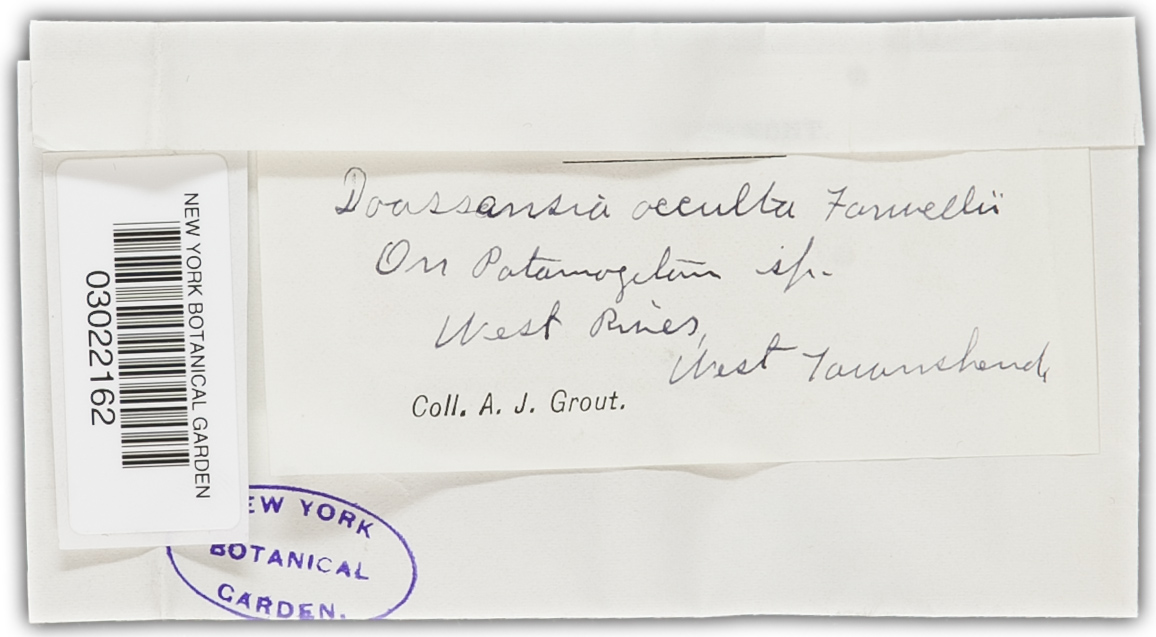 Doassansia occulta Farwellii
On Potamogeton sp.
West River,
West Townshend,
Coll. A. J. Grout.
NEW YORK BOTANICAL GARDEN
03022162
NEW YORK
BOTANICAL
GARDEN.